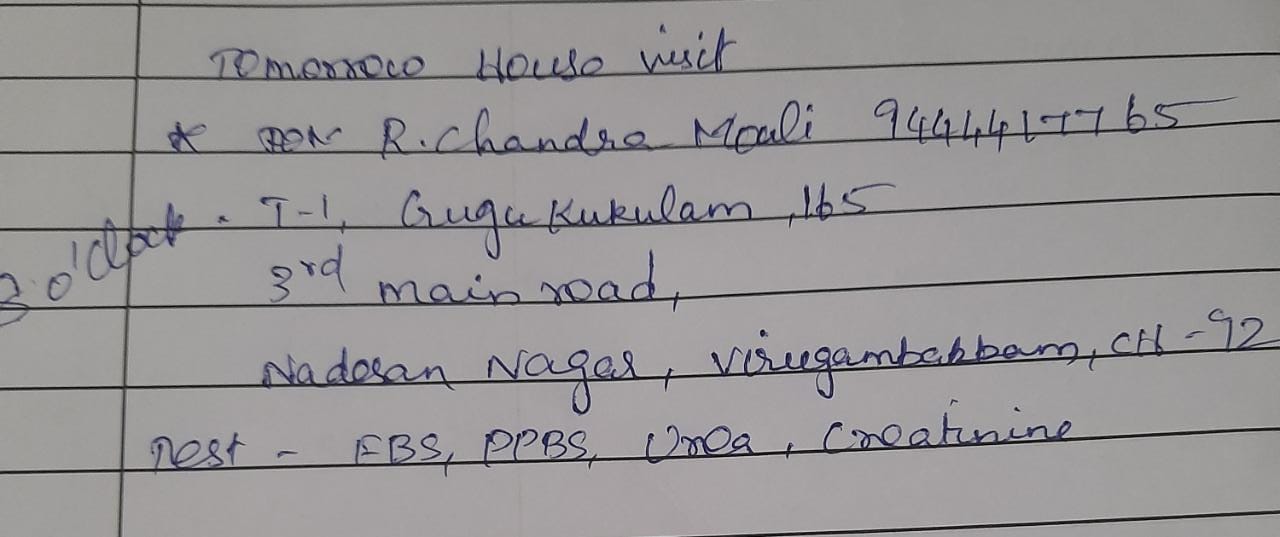 Tomorrow House visit
* R. Chandra Mouli 9444417765
T-1, Gugu Kukulam, 165
3 o'clock
3rd main road,
Nadesan Nagar, Virugambakkam, CH-92
Test - FBS, PPBS, Urea, Creatinine